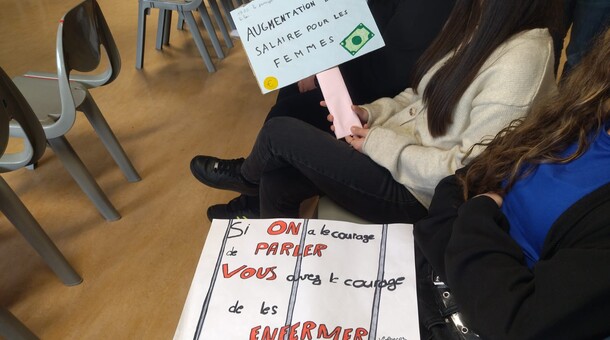 AUGMENTATION DE
SALAIRE POUR LES
FEMMES
Si ON a le courage
de PARLER
VOUS avez le courage
de les
ENFERMER